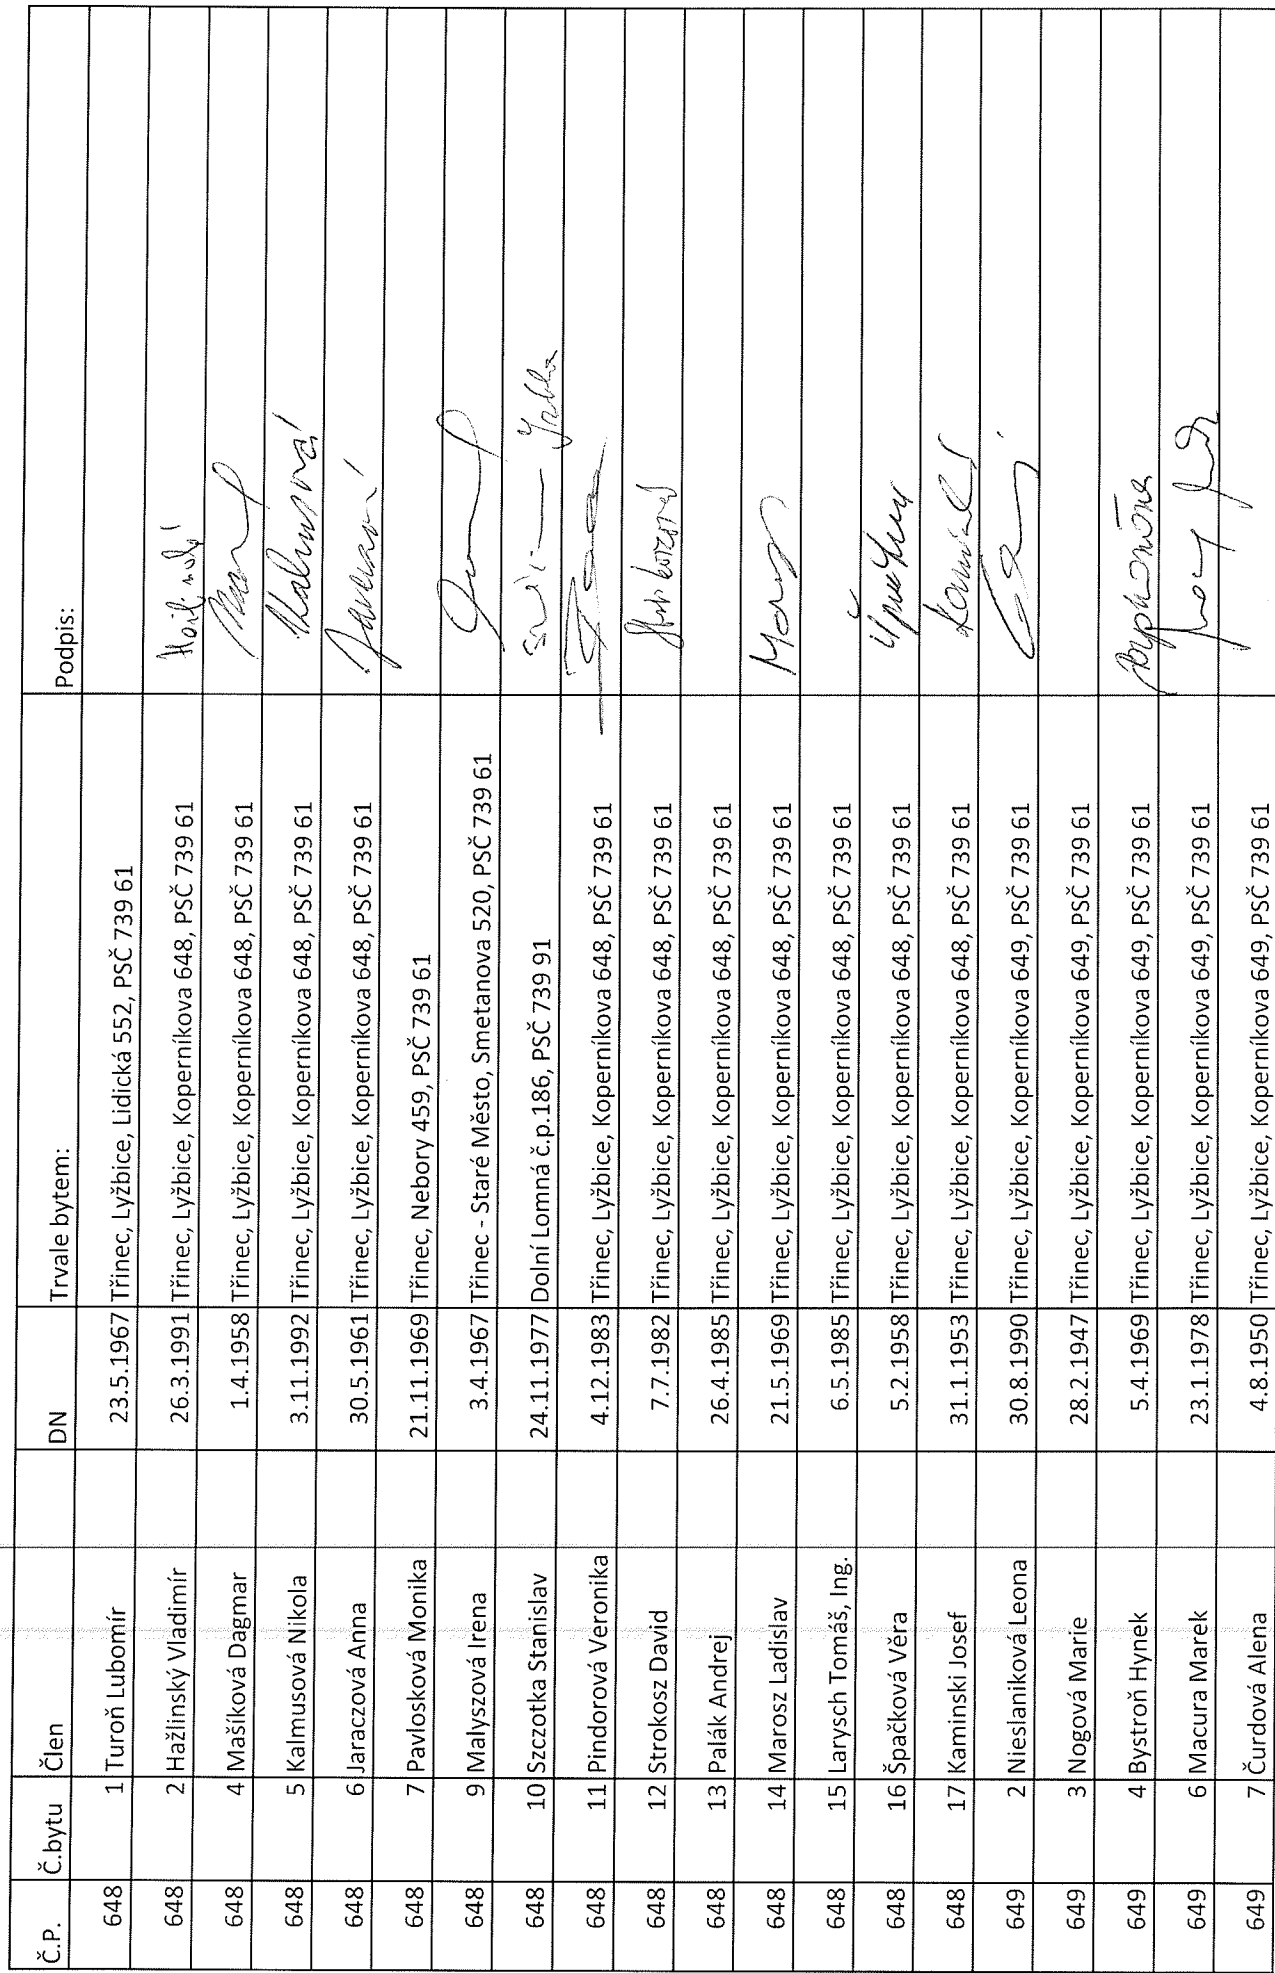 Č.P. Č.bytu Člen DN Trvale bytem: Podpis:
648 1 Turoň Lubomír 23.5.1967 Třinec, Lyžbice, Lidická 552, PSČ 739 61
648 2 Hažlinský Vladimír 26.3.1991 Třinec, Lyžbice, Koperníkova 648, PSČ 739 61
648 4 Mašíková Dagmar 1.4.1958 Třinec, Lyžbice, Koperníkova 648, PSČ 739 61
648 5 Kalmusová Nikola 3.11.1992 Třinec, Lyžbice, Koperníkova 648, PSČ 739 61 Kalmusová
648 6 Jaraczová Anna 30.5.1961 Třinec, Lyžbice, Koperníkova 648, PSČ 739 61
648 7 Pavlosková Monika 21.11.1969 Třinec, Nebory 459, PSČ 739 61
648 9 Malyszová Irena 3.4.1967 Třinec - Staré Město, Smetanova 520, PSČ 739 61
648 10 Szczotka Stanislav 24.11.1977 Dolní Lomná č.p.186, PSČ 739 91
648 11 Pindorová Veronika 4.12.1983 Třinec, Lyžbice, Koperníkova 648, PSČ 739 61
648 12 Strokosz David 7.7.1982 Třinec, Lyžbice, Koperníkova 648, PSČ 739 61
648 13 Palák Andrej 26.4.1985 Třinec, Lyžbice, Koperníkova 648, PSČ 739 61
648 14 Marosz Ladislav 21.5.1969 Třinec, Lyžbice, Koperníkova 648, PSČ 739 61
648 15 Larysch Tomáš, Ing. 6.5.1985 Třinec, Lyžbice, Koperníkova 648, PSČ 739 61
648 16 Špačková Věra 5.2.1958 Třinec, Lyžbice, Koperníkova 648, PSČ 739 61
648 17 Kaminski Josef 31.1.1953 Třinec, Lyžbice, Koperníkova 648, PSČ 739 61
649 2 Nieslaniková Leona 30.8.1990 Třinec, Lyžbice, Koperníkova 649, PSČ 739 61
649 3 Nogová Marie 28.2.1947 Třinec, Lyžbice, Koperníkova 649, PSČ 739 61
649 4 Bystroň Hynek 5.4.1969 Třinec, Lyžbice, Koperníkova 649, PSČ 739 61
649 6 Macura Marek 23.1.1978 Třinec, Lyžbice, Koperníkova 649, PSČ 739 61
649 7 Čurdová Alena 4.8.1950 Třinec, Lyžbice, Koperníkova 649, PSČ 739 61